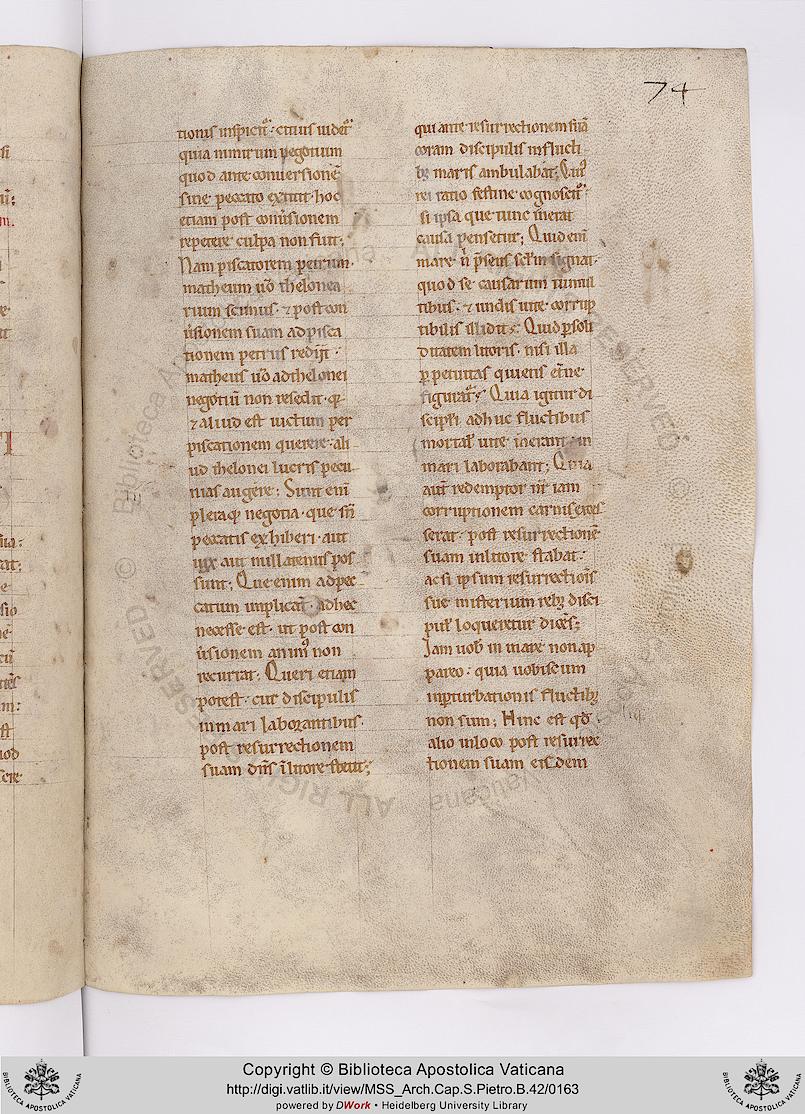 74
tionis inspicit᷑: cuius uidet᷑
quia nimirum negotium
quod ante conuersionē
sine peccato extitit· hoc
etiam post conūsionem
repetere culpa non fuit;
Nam piscatorem petrum·
matheum ūo thelonea
rium scimus· ⁊ post con
ūsionem suam ad pisca
tionem petrus redijt·
matheus ūo ad thelonei
negotiū non resedit· qꝛ
⁊ aliud est uictum per
piscationem querere· ali
ud thelonei lucris pecu
nias augere; Sunt enī
pleraqꝫ negotia· que sin̄
peccatis exhiberi· aut
uix aut nullatenus pos
sunt; Que enim ad pec
catum implicat· ad hec
necesse est· ut post con
ūsionem animꝰ non
recurrat; Queri etiam
potest· cur discipulis
in mari laborantibus·
post resurrectionem
suam dn̄s ī litore stetit;
qui ante resurrectionem suā
coram discipulis in flucti
bꝫ maris ambulabat; Cuiꝰ
rei ratio festine cognoscit᷑·
si ipsa que tunc inerat
causa pensetur; Quid enī
mare n̄ p̄sens sc̄lm signat·
quod se causarum tumul
tibus· ⁊ undis uite corrup
tibilis illidit; Quid ꝑ soli
ditatem litoris· nisi illa
ꝑpetuitas quietis et̄ne·
figurat᷑; Quia igitur di
scipuli adhuc fluctibus
mortal̓ uite inerant· in
mari laborabant; Quia
aut̄ redemptor nr̄ iam
corruptionem carnis exces
serat· post resurrectionē
suam in litore stabat·
ac si ipsum resurrectiōis
sue misterium rebꝫ disci
pul̓ loqueretur dicēs;
Iam uob̓ in mare non ap
pareo· quia uobiscum
in ꝑturbationis fluctibꝫ
non sum; Hinc est qđ
alio in loco post resurrec
tionem suam eisdem
Copyright © Biblioteca Apostolica Vaticana
http://digi.vatlib.it/view/MSS_Arch.Cap.S.Pietro.B.42/0163
powered by DWork • Heidelberg University Library